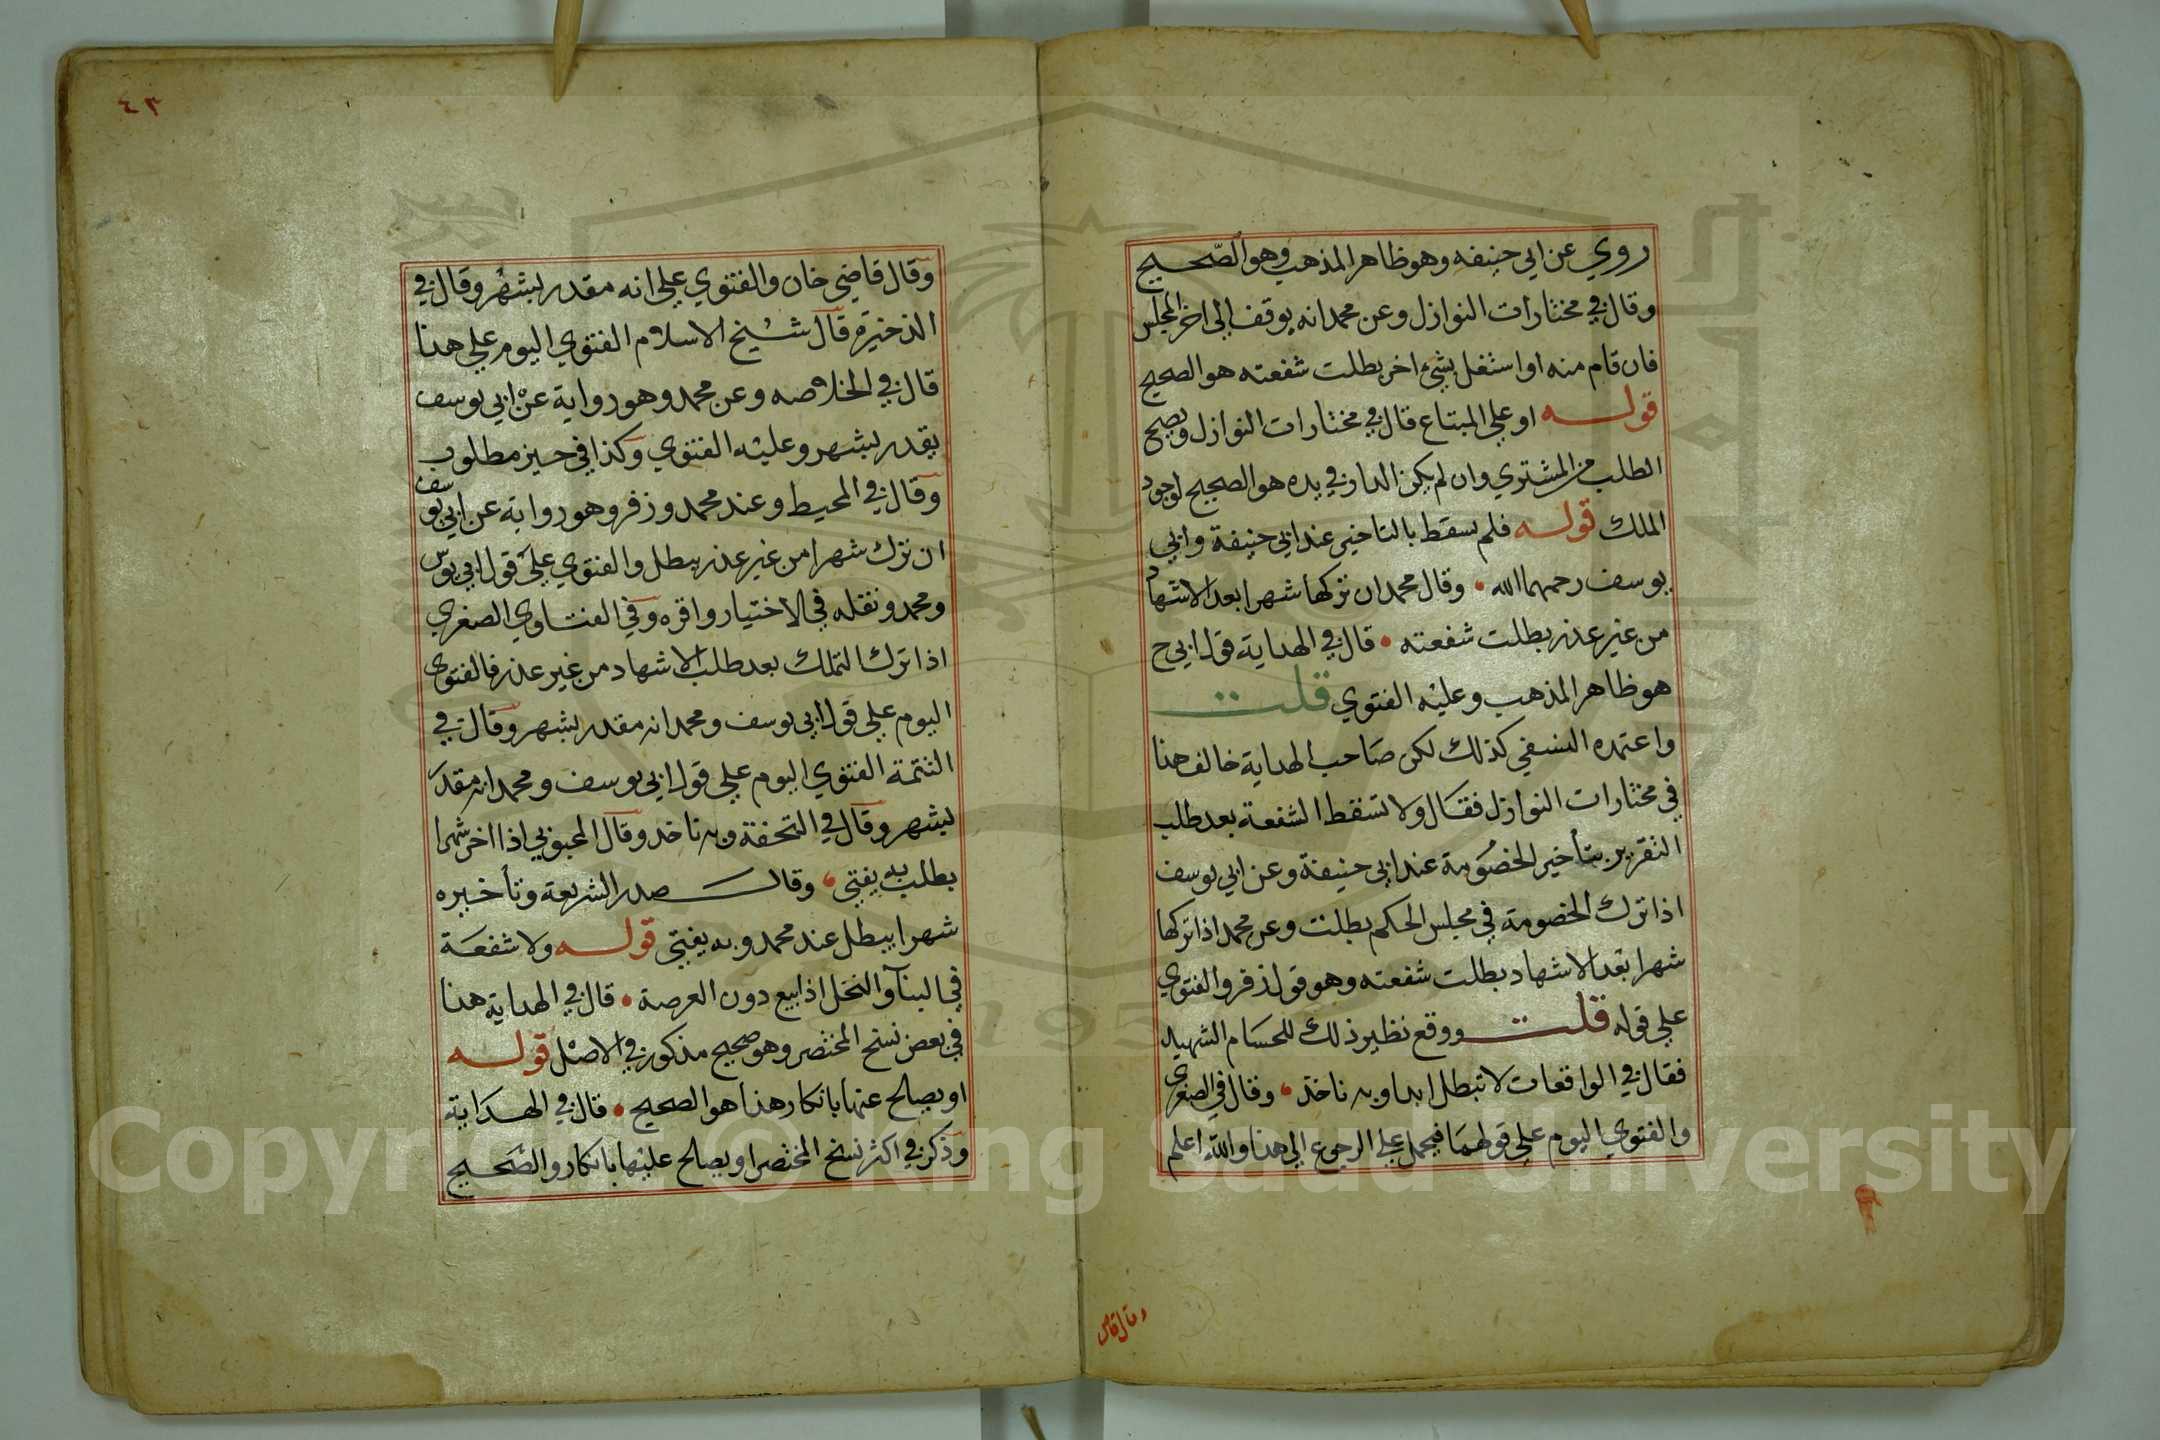 روي عن ابي حنيفه وهو ظاهر المذهب وهو الصّحيح
وقال في مختارات النوازل وعن محمد انه يوقف الى اخر المجلس
فان قام منه او اشتغل بشيء اخر بطلت شفعته هو الصحيح
قوله او علي المبتاع قال في مختارات النوازل ويصح
الطلب من المشتري وان لم يكن الدار في يده هو الصحيح لوجود
الملك قوله فلم تسقط بالتاخير عند ابي حنيفة وابي
يوسف رحمهما الله • وقال محمد ان تركها شهرا بعد الاشهاد
من غير عذر بطلت شفعته • قال في الهداية قول ابي ح
هو ظاهر المذهب وعليه الفتوي قلت
واعتمده النسفي كذلك لكن صاحب الهداية خالف هذا
في مختارات النوازل فقال ولا تسقط الشفعة بعد طلب
التقرير بتأخير الخصومة عند ابي حنيفة وعن ابي يوسف
اذا ترك الخصومة في مجلس الحكم بطلت وعن محمد اذا تركها
شهرا بعد الاشهاد بطلت شفعته وهو قول زفر والفتوي
علي قوله قلت ووقع نظير ذلك للحسام الشهيد
فقال في الواقعات لا تبطل ابدا وبه ناخذ • وقال في الصغري
والفتوي اليوم علي قولهما فيحمل علي الرجوع الي هذا والله اعلم
وقال قاض
٤٣
وقال قاضي خان والفتوي علي انه مقدر بشهر وقال في
الذخيرة قال شيخ الاسلام الفتوي اليوم علي هذا
قال في الخلاصه وعن محمد وهو رواية عن ابي يوسف
يقدر بشهر وعليه الفتوي وكذا في حيز مطلوب
وقال في المحيط وعند محمد وزفر وهو رواية عن ابي يوسف
ان ترك شهرا من غير عذر يبطل والفتوي علي قول ابي يوس
ومحمد ونقله في الاختيار واقره وفي الفتاوي الصغري
اذا ترك التملك بعد طلب الاشهاد من غير عذر فالفتوي
اليوم علي قول ابي يوسف ومحمد انه مقدر بشهر وقال في
التتمة الفتوي اليوم علي قول ابي يوسف ومحمد انه مقدر
بشهر وقال في التحفة وبه ناخذ وقال المحبوبي اذا اخر شهرا
بطلت به يفتي • وقال صدر الشريعة وتأخيره
شهرا يبطل عند محمد وبه يفتي قوله ولا شفعة
في البنآ والنخل اذا بيع دون العرصة • قال في الهداية هذا
في بعض نسخ المختصر وهو صحيح مذكور في الاصل قوله
او يصالح عنها بانكار هذا هو الصحيح • قال في الهداية
وذكر في اكثر نسخ المختصر او يصالح عليها بانكار والصحيح
Copyright © King Saud University